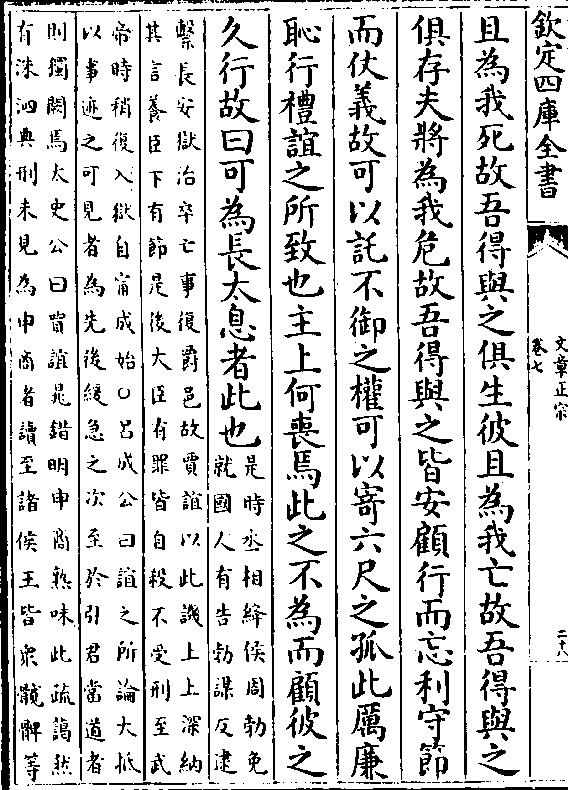 欽定四庫全書
文章正宗
卷七
二十八
且為我死故吾得與之俱生彼且為我亡故吾得與之
俱存夫將為我危故吾得與之皆安顧行而忘利守節
而仗義故可以託不御之權可以寄六尺之孤此厲廉
恥行禮誼之所致也主上何喪焉此之不為而顧彼之
久行故曰可為長太息者此也
是時丞相絳侯周勃免
就國人有告勃謀反逮
繫長安獄治卒亡事復爵邑故賈誼以此譏上上深納
其言養臣下有節是後大臣有罪皆自殺不受刑至武
帝時稍復入獄自甯成始○呂成公曰誼之所論大抵
以事迹之可見者為先後緩急之次至於引君當道者
則獨闕焉太史公曰賈誼晁錯明申商熟味此疏藹然
有洙泗典刑未見為申商者讀至諸侯王皆衆髖髀等